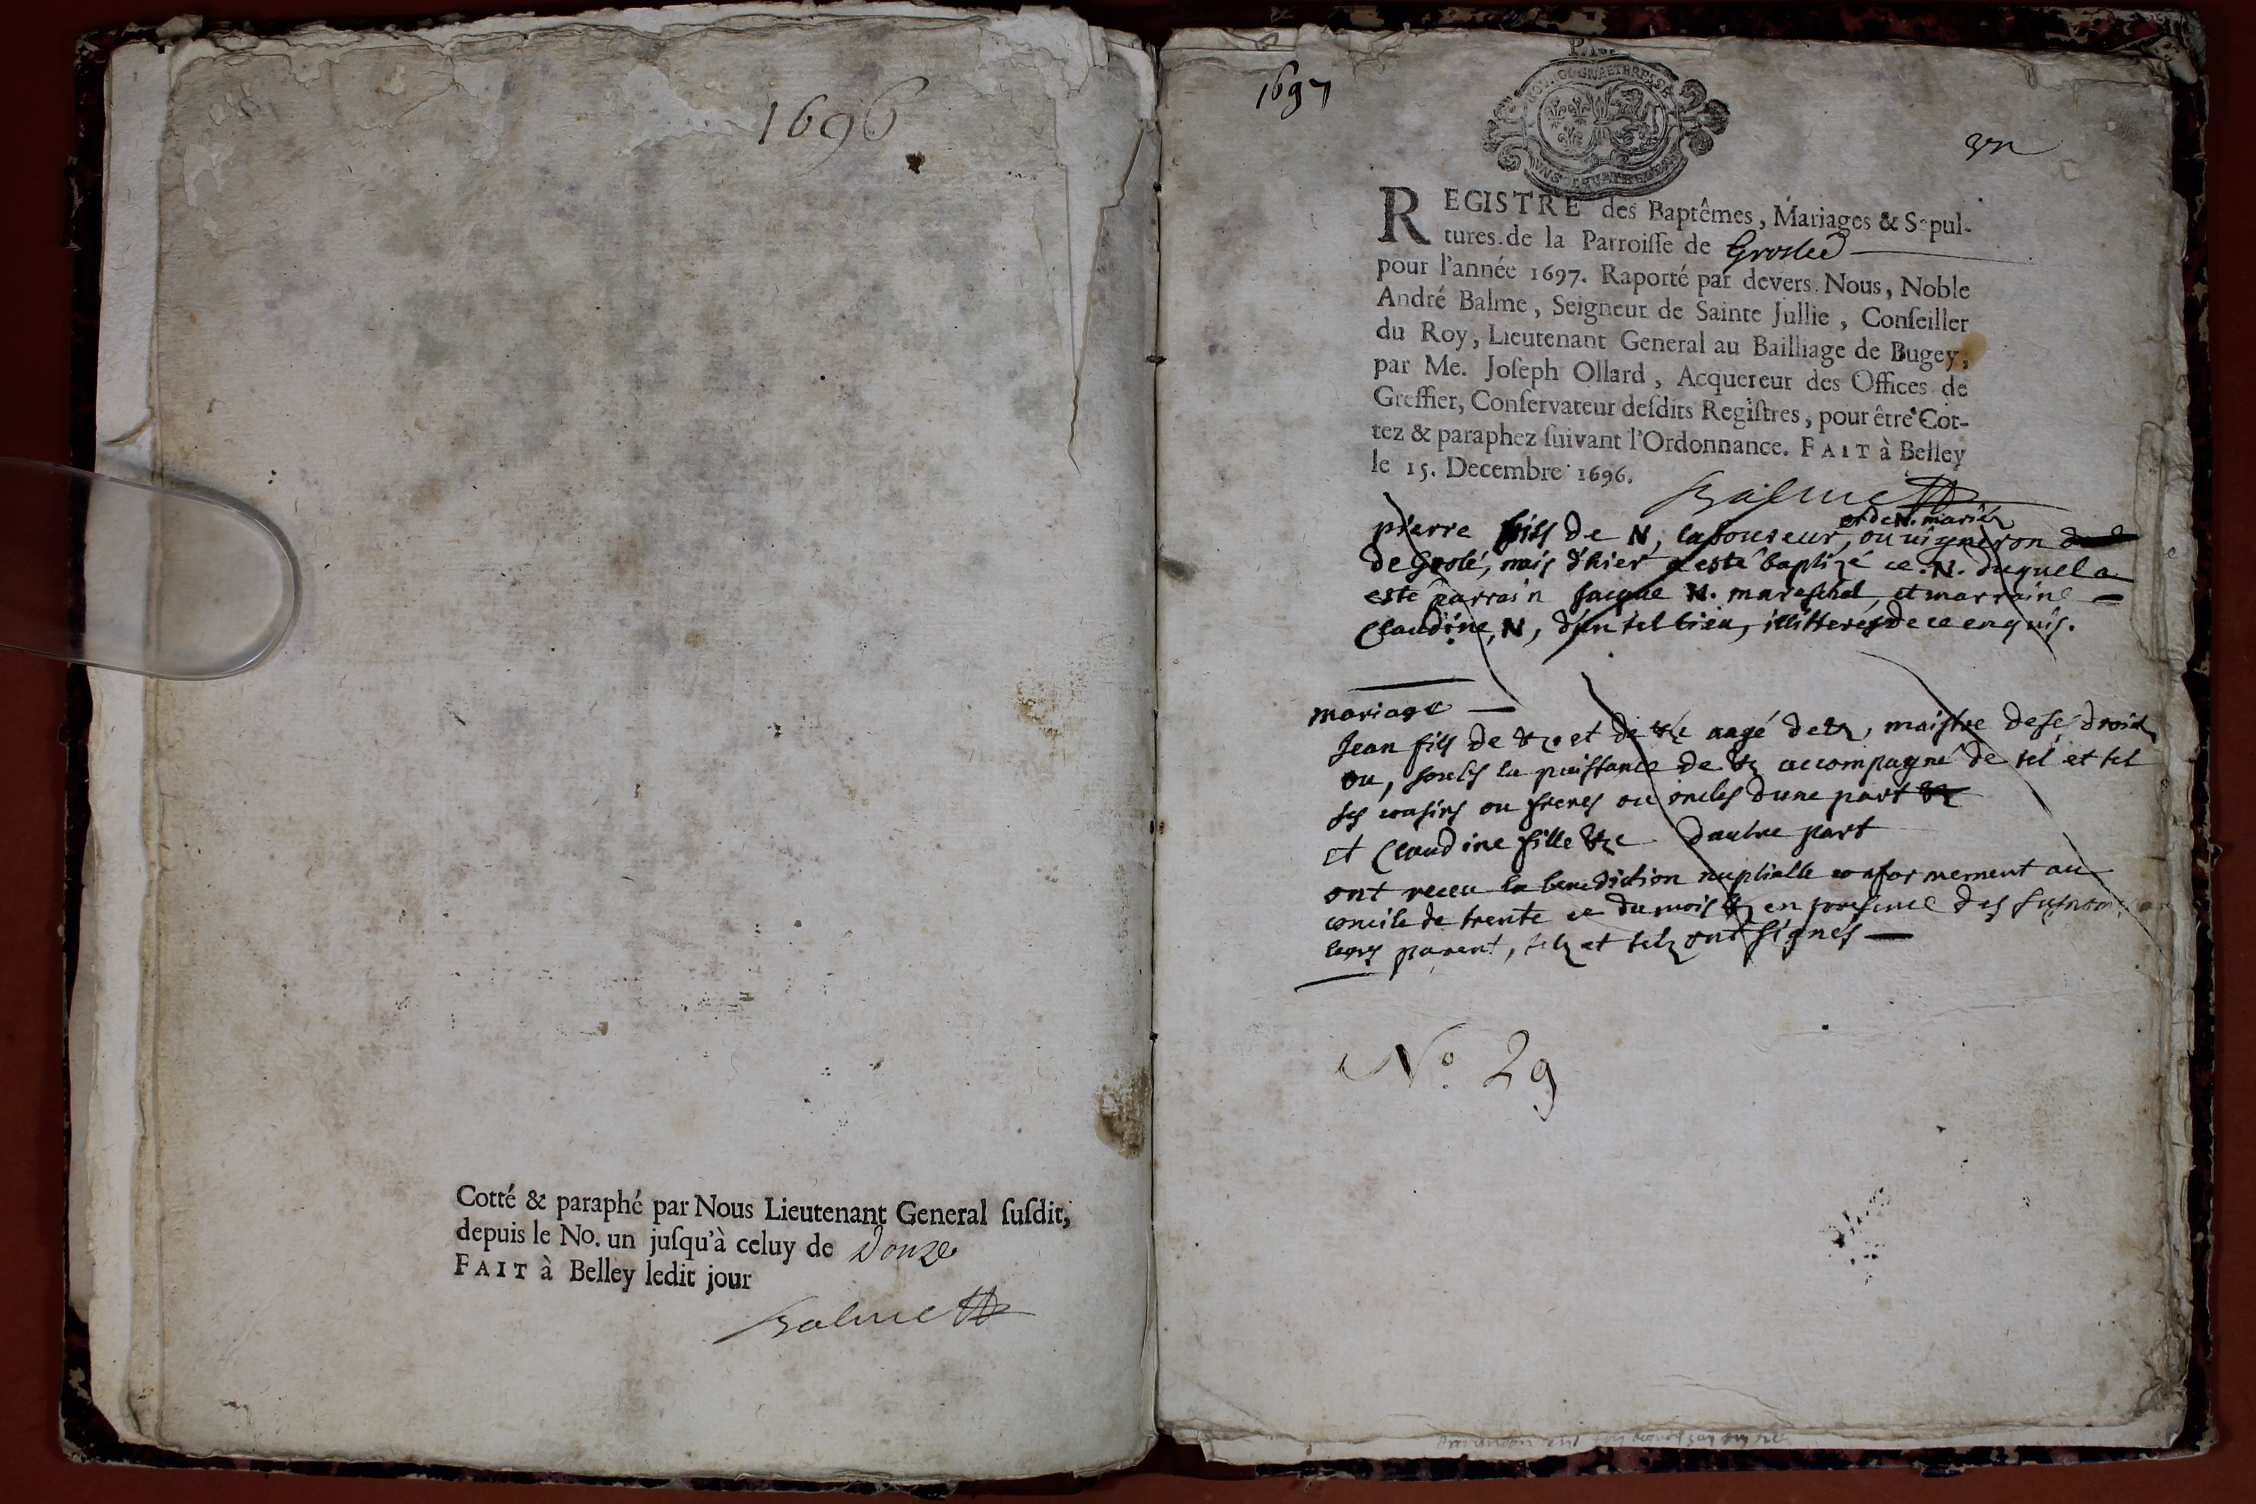 1696
Cotté & paraphé par Nous Lieutenant General ſuſdit,
depuis le No. un juſqu'à celuy de Douze
FAIT à Belley ledit jour
Balme
1697
REGISTRE des Baptêmes, Mariages & Sepul-
tures de la Parroiſſe de Groslee
pour l'année 1697. Raporté par devers Nous, Noble
André Balme, Seigneur de Sainte Jullie, Conſeiller
du Roy, Lieutenant General au Bailliage de Bugey,
par Me. Joſeph Ollard, Acquereur des Offices de
Greffier, Conſervateur deſdits Regiſtres, pour être Cot-
tez & paraphez ſuivant l'Ordonnance. FAIT à Belley
le 15. Decembre 1696.
Balme
et de N. mariés
pierre fils de N, laboureur, ou vigneron
de Grolé, nais d'hier a esté baptizé ce N. duquel a
esté parrain Jacque N. mareschal, et marraine
Claudine, N, d'un tel lieu, illitterés de ce enquis.
mariage
Jean fils de &c et de &c aagé de &c, maistre de ses droits
ou, soubs la puissance de &c accompagné de tel et tel
ses cousins ou freres ou oncles d'une part
et Claudine fille &c d'autre part
ont receu la benediction nuptialle conformement au
concile de trente ce du mois &c en presence des susnommes
leurs parent, telz et telz ont signés
No. 29